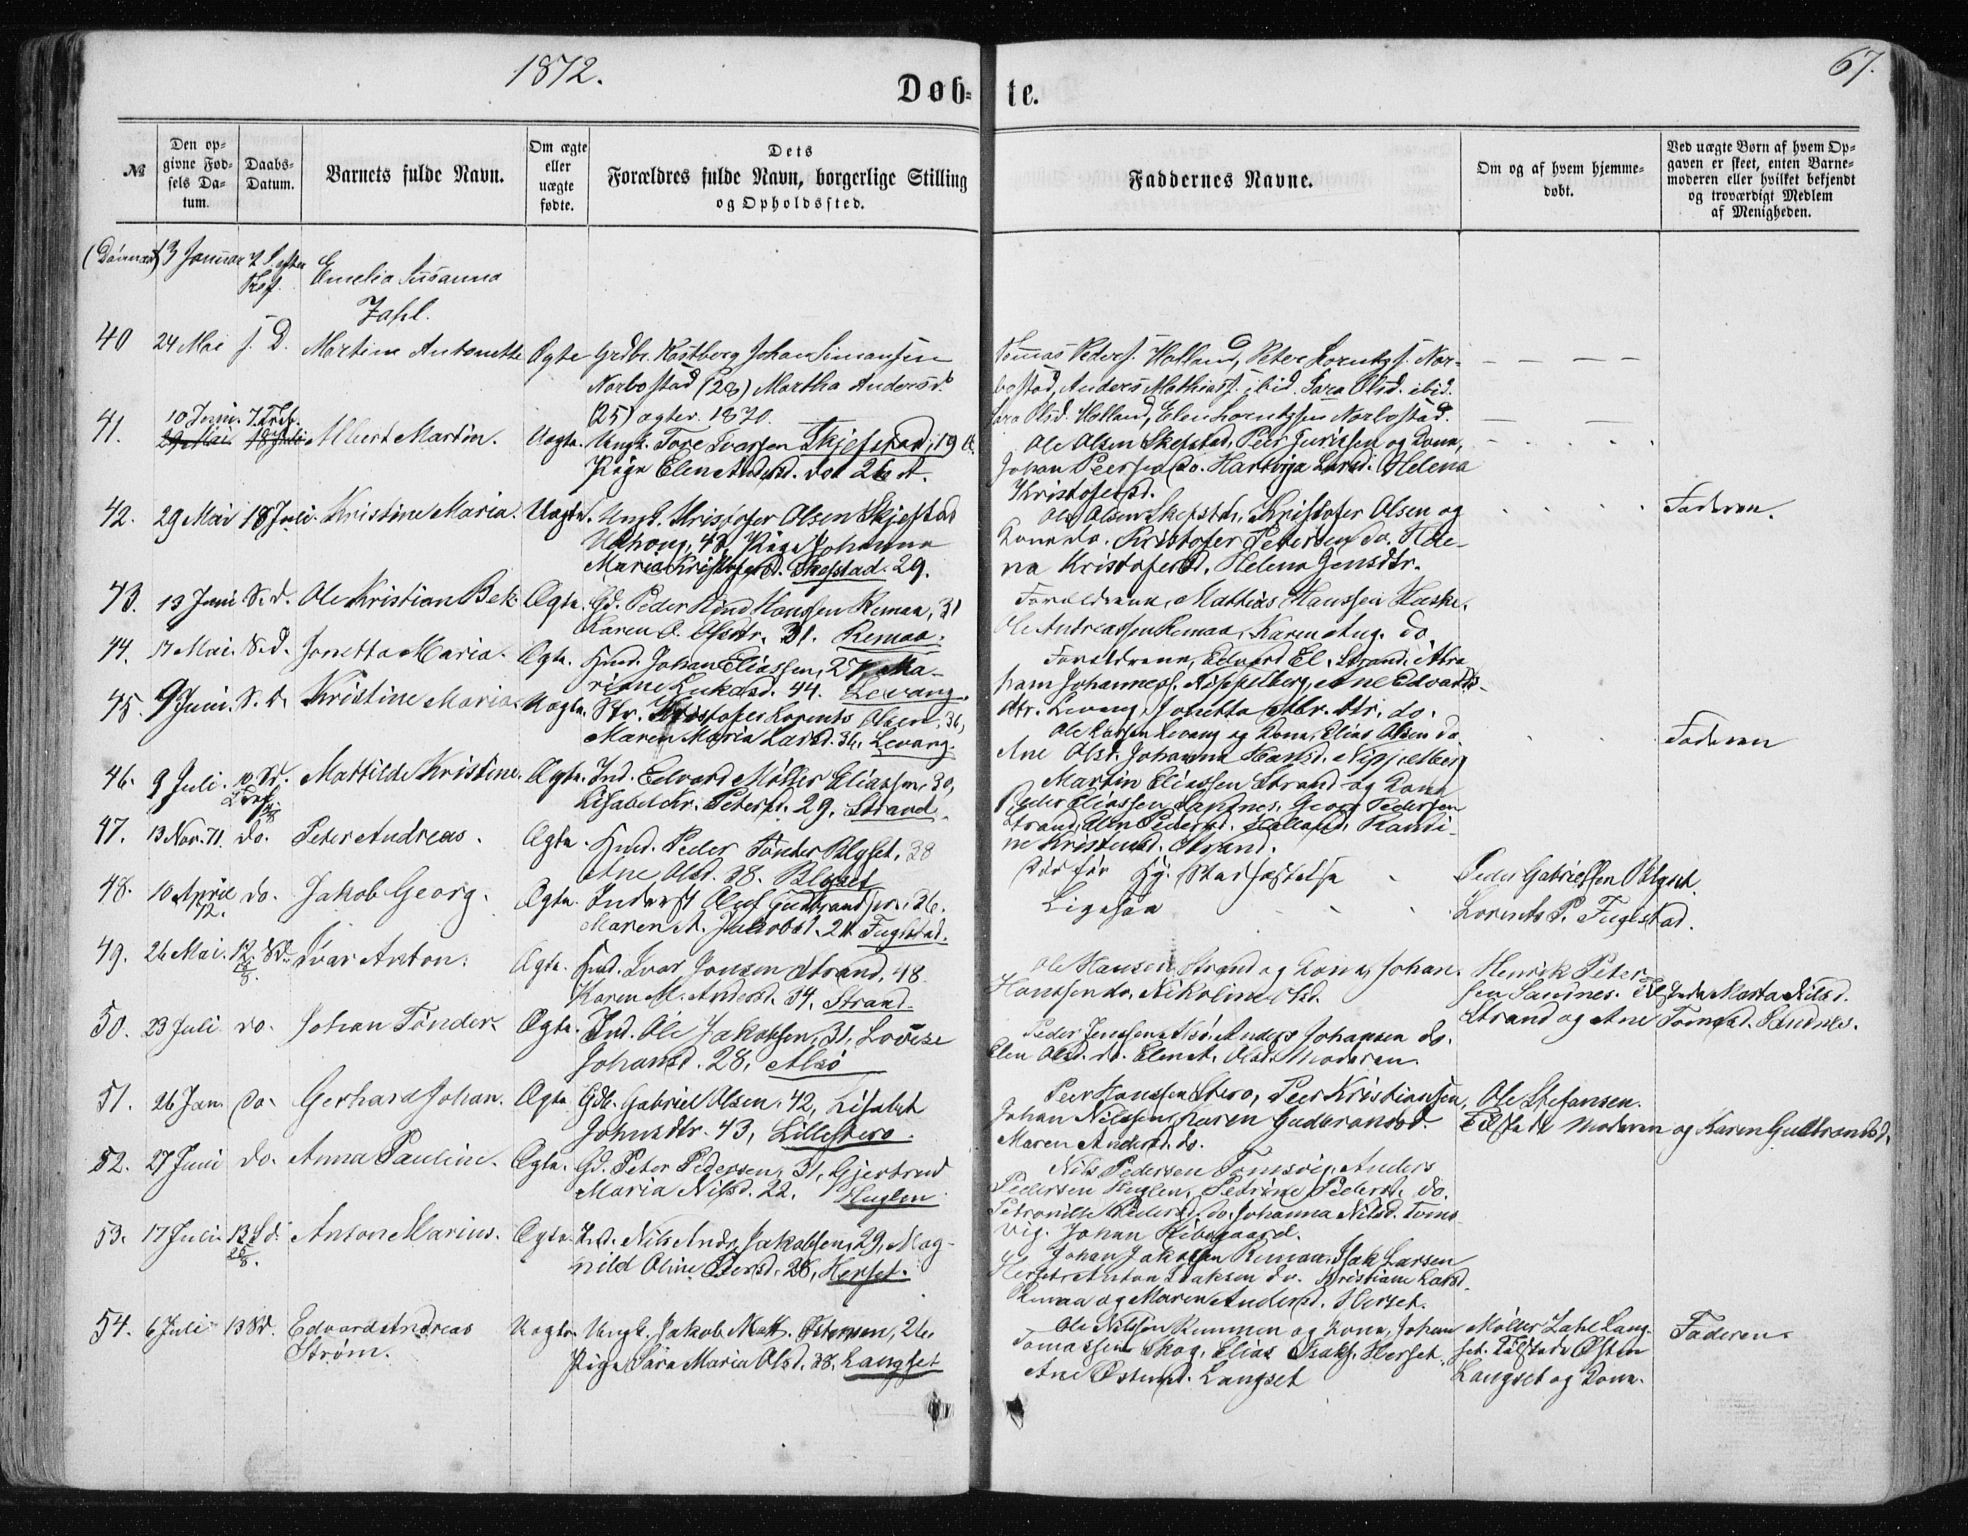 1872.
67.
Døb-
te.
№
Den op-
givne Fød-
sels Da-
tum.
Daabs-
Datum.
Barnets fulde Navn.
Om ægte
eller
uægte
fødte.
Dets
Forældres fulde Navn, borgerlige Stilling
og Opholdssted.
Faddernes Navne.
Om og af hvem hjemme-
døbt.
Ved uægte Børn af hvem Op-
gaven er skeet, enten Barne-
moderen eller hvilket bekjendt
og troværdigt Medlem
af Menigheden.
3 Januar
Emelia Susanna
Zahl.
40
24 Mai
Martine Antonette
Ægte
Johan Simonsen
Norbostad (28) Martha Andersd.
(25) 1870.
Holland, Peter Lorntzs. Nor-
bostad, Anders Mathiass. ibid. Sara Olsd. ibid.
Olsd. Holland, Elen Lorntzsen Norbostad.
41.
10 Juni
29 Mai 18 Juli
Albert Martin.
Uægte.
Ungk. Tore Ivarsen Skjefstad, 19
Pige Elen Andersd. do 26 A.
Ole Olsen Skefstad, Peer Jurissen og Kone,
Johan Peersen do. Larsd. Helena
Kristofersd.
42.
29 Mai
18 Juli.
Kristine Maria.
Uægte.
Ungk. Kristofer Olsen Skjefstad
Pige Johanna
Maria Kristofersd. Skefstad. 29.
Ole Olsen Skefstad, Kristofer Olsen og
Kone do. Kristofer Petersen do. Hele-
na Kristofersd. Helena Jensdtr.
Faderen.
43.
13 Juni
S. d.
Ole Kristian Bek.
Ægte.
Gd. Peder Hanssen Remaa, 31
Karen O. Olsdtr. 31. Remaa.
Forældrene, Mathias Hanssen
Ole Andreassen Remaa, Karen Aug. do.
44.
17 Mai.
S. d.
Jonetta Maria.
Ægte.
Husd. Johan Eliassen, 27, Ma-
rine Lukasd. 44. Levang.
Forældrene, Edvard El. Strand, Abra
ham Johanness. Nippelberg, Ane Edvards-
dtr. Levang, Jonetta Abr. dtr. do.
45.
9 Juni.
S. d.
Kristine Maria.
Uægte.
Str. Kristofer Lorents Olsen, 36,
Maren Maria Larsd. 36, Levang.
Ole Larsen Levang og Kone, Elias Olsen do
Ane Olsd. Johanna Hansd. Nippelberg
Faderen
46.
9 Juli.
10 Sd.
Mathilde Kristine.
Ægte.
Ind. Edvard Møller Eliassen, 30,
Lisabet Kr. Petersd. 29. Strand.
Martin Eliassen Strand og Kone
Peder Eliassen Sandnes, Georg Pedersen
Strand, Elen Pedersd. Holland,
ne Kristensd. Strand.
47.
13 Nov. 71.
do.
Peter Andreas.
Ægte.
Husd. Peder Tønder Blyset, 38
Ane Olsd. 38. Blyset
Død før Stadfæstelse
Peder Gabrielsen Blyset.
48.
10 April
72.
do.
Jakob Georg.
Ægte.
Inderst Oluf Gudbrandsen, 36.
Maren A. Jakobsd. 24 Fuglstad.
Ligesaa
Lorents P. Fuglstad.
49.
26 Mai.
12. Sd.
Ivar Anton.
Ægte.
Husd. Ivar Jonsen Strand, 48.
Karen M. Andersd. 34, Strand.
Ole Hansen Strand og Kone, Johan
Hanssen do. Nikoline Olsd.
Henrik Peter
sen Sandnes. Marta Nilsd.
Strand og Ane Tomasd. Sandnes.
50.
23 Juli
do.
Johan Tønder.
Ægte.
Ind. Ole Jakobsen, 31, Lovise
Johansd. 28, Alsø
Peder Jenssen Alsø, Anders Johansen do.
Elen Olsd. do. Elen A. Olsd. Moderen.
51.
26 Jan.
do.
Gerhard Johan.
Ægte.
Gdb. Gabriel Olsen, 42, Lisabet
Johnsdtr. 43, Lillestero.
Peer Hanssen Stero, Peer Kristiansen,
Johan Nilssen, Karen Gudbrandsd.
Maren Andersd. do.
Ole Stefansen.
Tilstede Moderen og Karen Gudbrandsd.
52.
27 Juni
do.
Anna Pauline.
Ægte.
Gd. Peter Pedersen, 31, Gjertrud
Maria Nilsd. 22. Huglen
Nils Pedersen Tomsvig, Anders
Pedersen Huglen, Petrine Pedersd. do.
Petronille Pedersd. do. Johanna Nilsd. Toms-
vig. Johan Kibsgaard.
53.
17 Juli.
13 Sd.
25/8.
Anton Marius.
Ægte.
Ind. Nils Andr. Jakobsen, 29, Mag-
nild Oline Persd. 28, Herset.
Johan Jakobsen Remaa, Isak Larsen
Herset, Anton Isaksen do. Kristiane Larsd.
Remaa og Maren Andersd. Herset.
54.
6 Juli
13 Sd.
Edvard Andreas
Strøm.
Uægte
Ungk. Jakob Matt. Petersen, 26.
Pige Sara Maria Olsd. 38, Langset
Ole Nilssen Rummen og Kone, Johan
Tomassen Skog, Elias Isaks. Herset,
Ane Østensd. Langset
Møller Zahl Lang-
set. Tilstede Østen
Langset og Kone.
Faderen.